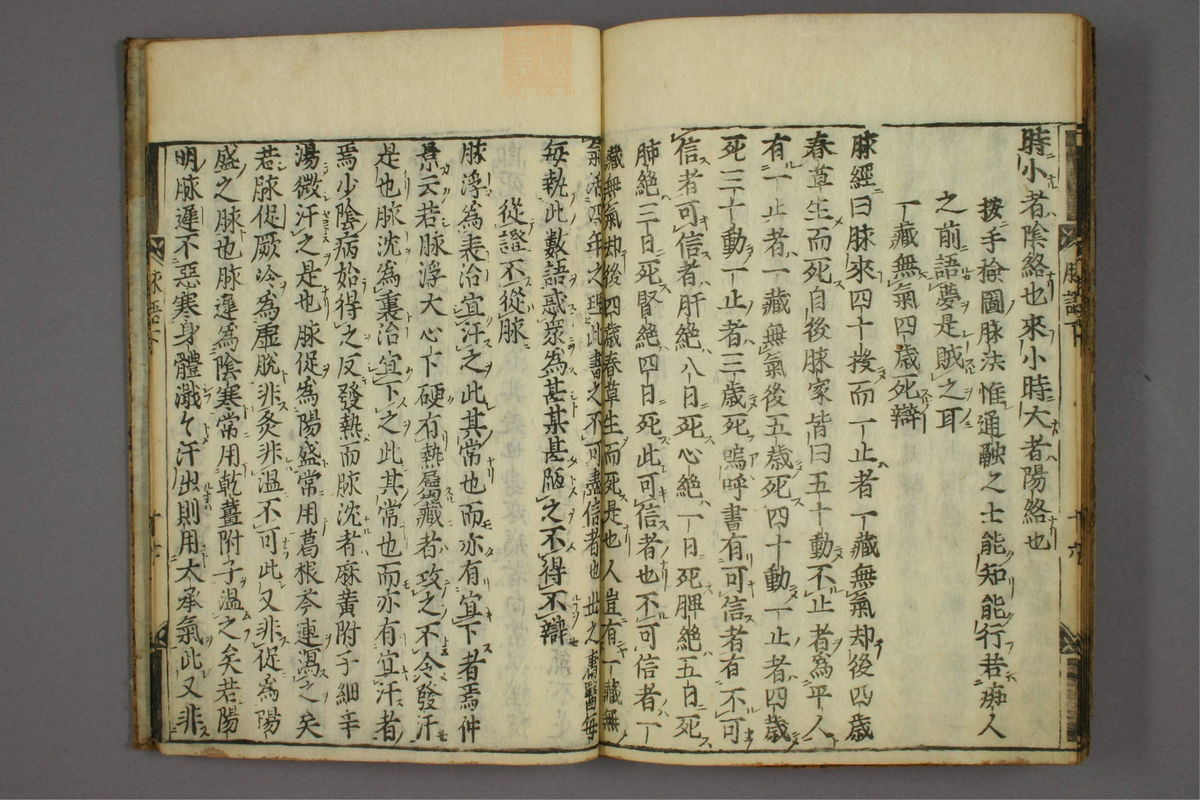 時小者陰絡也來小時大者陽絡也
按手撿圖脉法惟通融之士能知能行若痴人
之前語夢是賊之耳
一藏無氣四歲死辯
脉經曰脉來四十投而一止者一藏無氣却後四歲
春草生而死自後脉家皆曰五十動不止者爲平人
有一止者一藏無氣後五歲死四十動一止者四歲
死三十動一止者三歲死嗚呼書有可信者有不可
信者可信者肝絶八日死心絶一日死脾絶五日死
肺絶三日死腎絶四日死此可信者也不可信者一
藏無氣却後四歲春草生而死是也人豈有一藏無
氣活四年之理此書之不可盡信者也世之庸醫每
每執此數語惑衆爲甚某甚陋之不得不辯
從證不從脉
脉浮爲表治宜汗之此其常也而亦有宜下者焉仲
景云若脉浮大心下硬有熱屬藏者攻之不令發汗
是也脉沈爲裏治宜下之此其常也而亦有宜汗者
焉少陰病始得之反發熱而脉沈者麻黄附子細辛
湯微汗之是也脉促爲陽盛常用葛根芩連瀉之矣
若脉促厥冷爲虚脫非灸非温不可此又非促爲陽
盛之脉也脉遲爲陰寒常用乾薑附子温之矣若陽
明脉遲不惡寒身體濈々汗出則用大承氣此又非
脉語下
十六